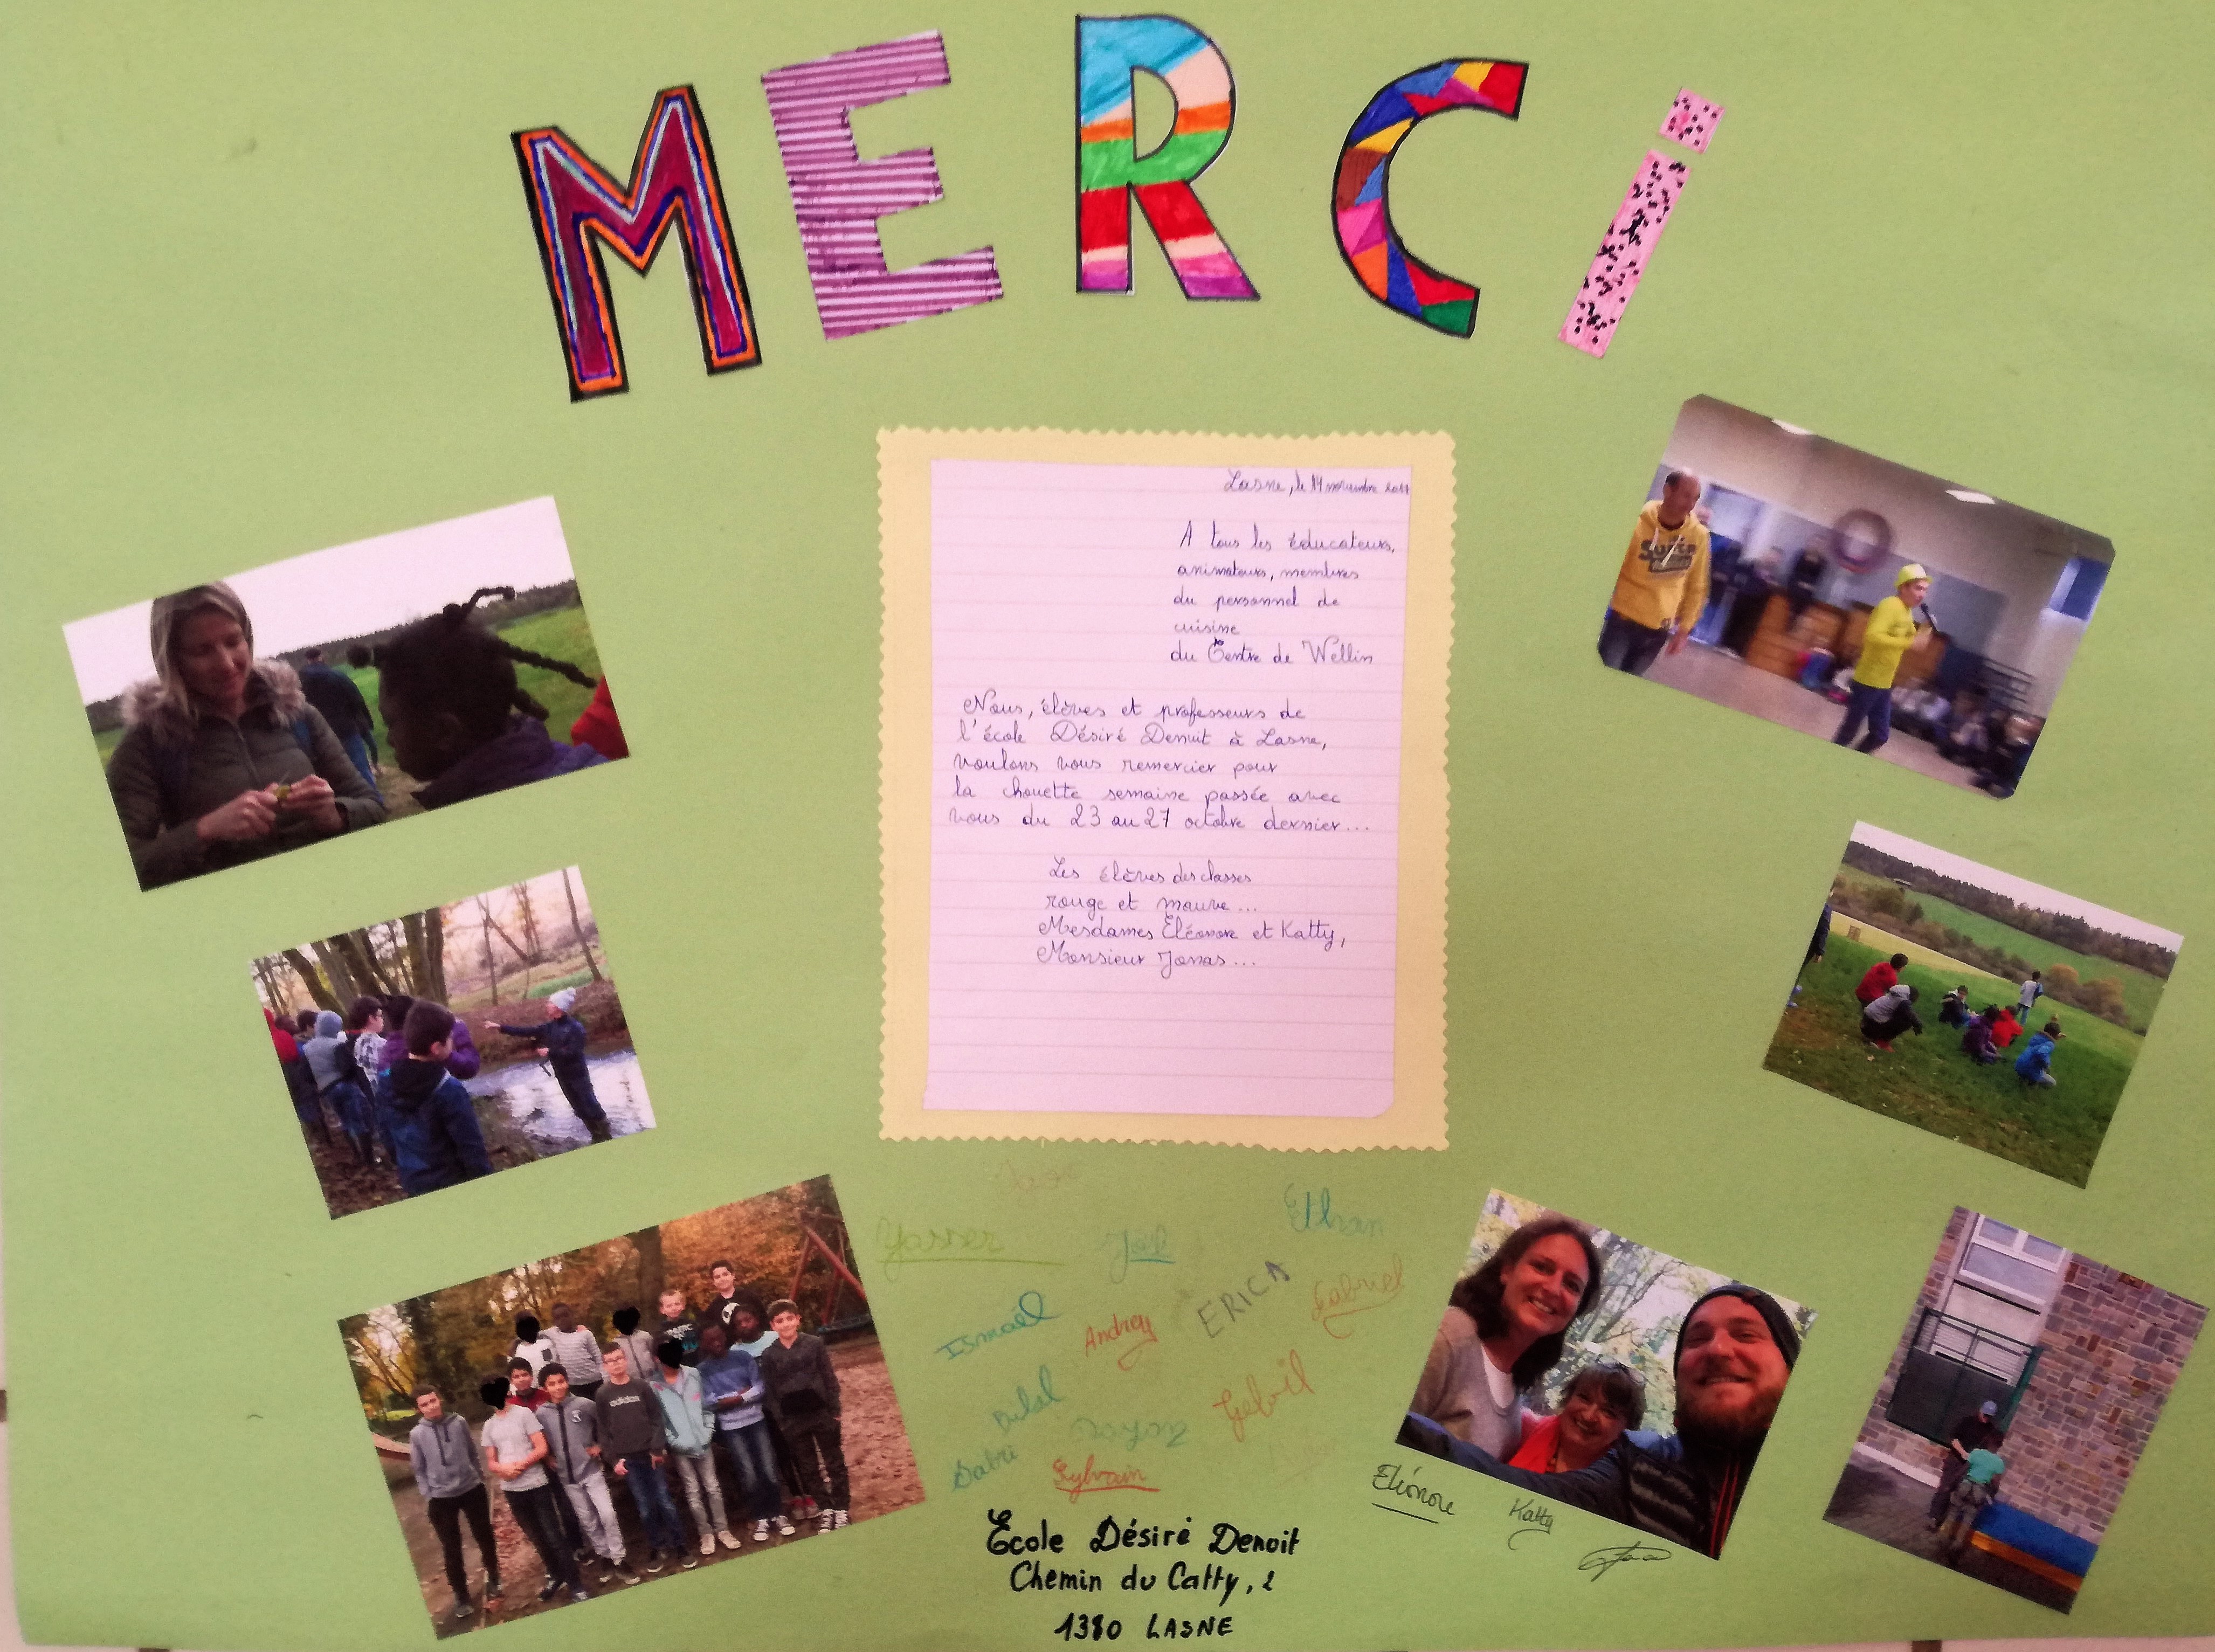 MERCi
Lasne, le 14 novembre 2017
A tous les éducateurs,
animateurs, membres
du personnel de
cuisine
du Centre de Wellin
Nous, élèves et professeurs de
l'école Désiré Denuit à Lasne,
voulons vous remercier pour
la chouette semaine passée avec
vous du 23 au 27 octobre dernier...
Les élèves des classes
rouge et mauve...
Mesdames Eléonore et Katty,
Monsieur Jonas...
Yasser
Joël
Ethan
Ismaël
Andrey
ERICA
Gabriel
Bilal
Sabri
Sylvain
Eléonore
Katty
École Désiré Denoit
Chemin du Catty, 2
1380 LASNE
adidas